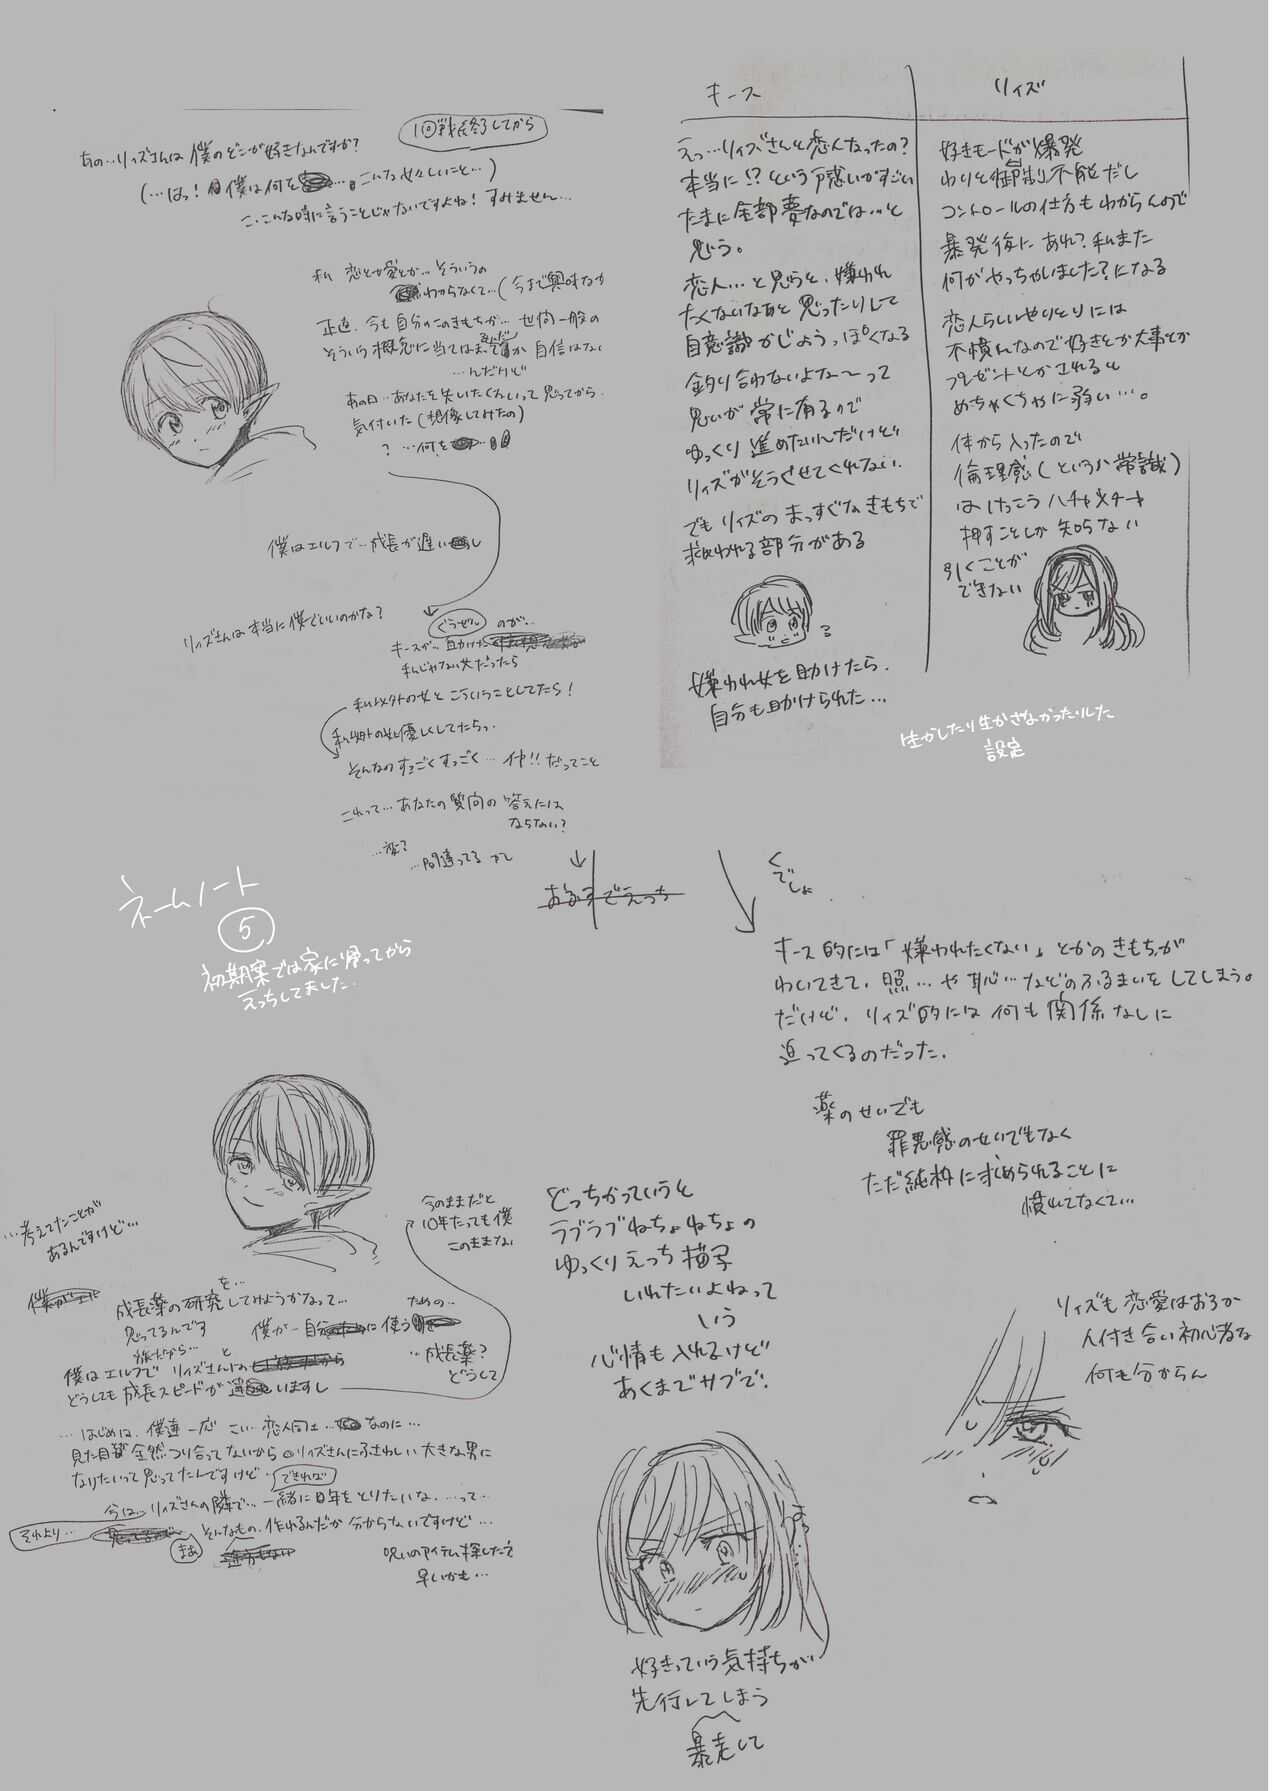 1回戦終了してから
あの…リィズさんは僕のどこが好きなんですか?
(…はっ! 僕は何を…こんな女々しいこと…)
こ、こんな時に言うことじゃないですよね! すみません…
私 恋とか愛とか…そういうの
わからなくて…(今まで興味なか
正直、今も自分のこのきもちが… 世間一般の
そういう概念に当てはまるか 自信はない
…んだけど
あの日…あなたを失いたくないって思ってから
気付いた(想像してみたの)
? …何を
僕はエルフで…成長が遅いし
リィズさんは本当に僕でいいのかな?
ぐうぜん のが…
キースが… 助けた
私じゃない女だったら
私以外の女とこういうことしてたら!
私以外の女に優しくしてたらっ
そんなのすっごくすっごく…イヤ!!だってこと
これって…あなたの質問の答えには
ならない?
…変?
…間違ってる
キース
えっ…リィズさんと恋人なったの?
本当に!?という戸惑いがすごい
たまに全部夢なのでは…と
思う。
恋人…と思うと、嫌われ
たくないなあと思ったりして
自意識かじょうっぽくなる
釣り合わないよな〜って
思いが常に有るので
ゆっくり進めたいんだけど
リィズがそうさせてくれない
でもリィズのまっすぐなきもちで
救われる部分がある
?
嫌われ女を助けたら、
自分も助けられた…
リィズ
好きモードが爆発
わりと制御不能だし
コントロールの仕方もわからんので
暴発後にあれ?私また
何かやっちゃいました?になる
恋人らしいやりとりには
不慣れなので好きとか大事とか
プレゼントとかされると
めちゃくちゃに弱い…。
体から入ったので
倫理感(というか常識)
はけっこうハチャメチャ
押すことしか知らない
引くことが
できない
生かしたり生かさなかったりした
設定
ネームノート
5
初期案では家に帰ってから
えっちしてました
おるすでえっち
くでしょ
キース的には「嫌われたくない」とかのきもちが
わいてきて、照…や恥…などのふるまいをしてしまう。
だけど、リィズ的には何も関係なしに
迫ってくるのだった。
薬のせいでも
罪悪感のせいでもなく
ただ純粋に求められることに
慣れてなくて…
どっちかっていうと
ラブラブねちょねちょの
ゆっくりえっち描写
いれたいよねって
いう
心情も入れるけど
あくまでサブで。
リィズも恋愛はおろか
人付き合い初心者な
何も分からん
…考えてたことが
あるんですけど…
今のままだと
10年たっても僕
このままな
を…
成長薬の研究してみようかなって…
思ってるんです
僕が…自分に使う
ための…
…成長薬?
どうして
僕はエルフで リィズさんとは
どうしても成長スピードが違いますし
…はじめは、僕達一応 こい…恋人同士…なのに…
見た目が全然つり合ってないからリィズさんにふさわしい大きな男に
なりたいって思ってたんですけど…
できれば
今は…リィズさんの隣で…一緒に年をとりたいな…って…
それより…
まあ
そんなもの、作れるんだか分からないですけど…
呪いのアイテム探した方
早いかも…
好きっていう気持ちが
先行してしまう
暴走して